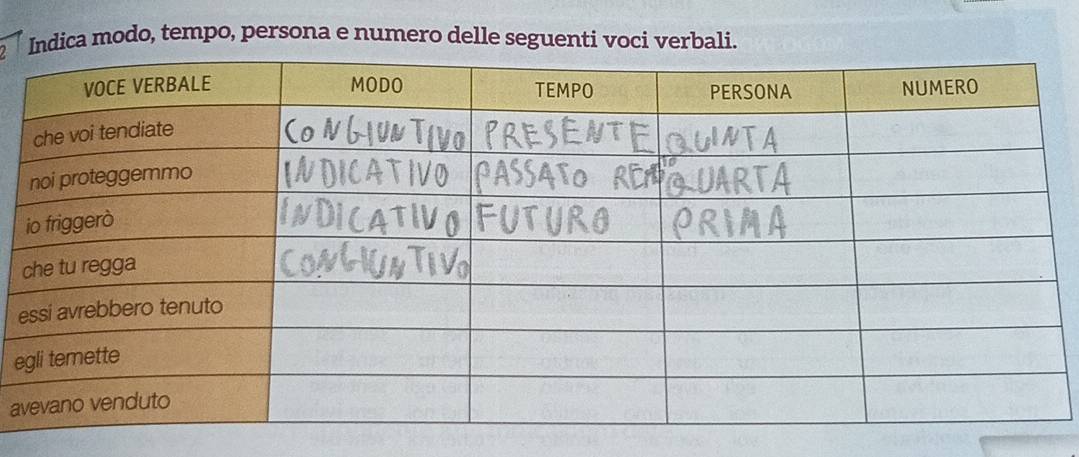 2 Indica modo, tempo, persona e numero delle seguenti voci verbali.
VOCE VERBALE MODO TEMPO PERSONA NUMERO
che voi tendiate CONGIUNTIVO PRESENTE QUINTA
noi proteggemmo INDICATIVO PASSATO QUARTA
io friggerò INDICATIVO FUTURO PRIMA
che tu regga CONGIUNTIVO
essi avrebbero tenuto
egli temette
avevano venduto